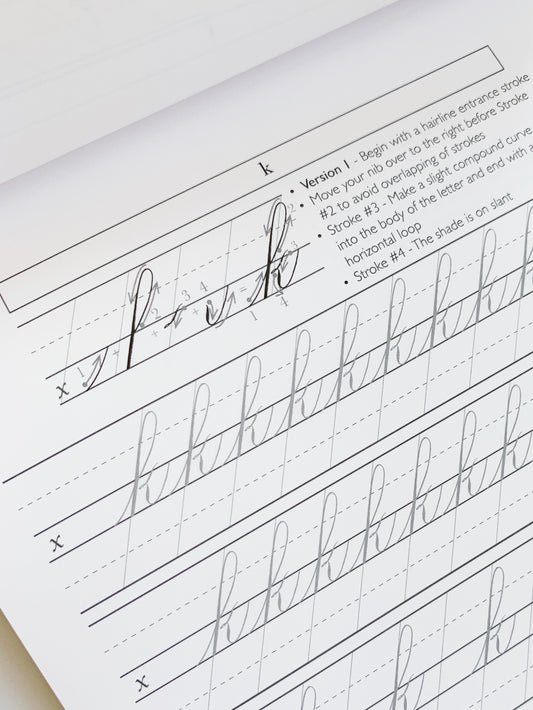 k
• Version 1 - Begin with a hairline entrance stroke
• Move your nib over to the right before Stroke
#2 to avoid overlapping of strokes
• Stroke #3 - Make a slight compound curve
into the body of the letter and end with a
horizontal loop
• Stroke #4 - The shade is on slant
x 1 + 2 + 3 + 4 = k 1 2 3 4
x k k k k k k k k k
x k k k k k k k
k k k